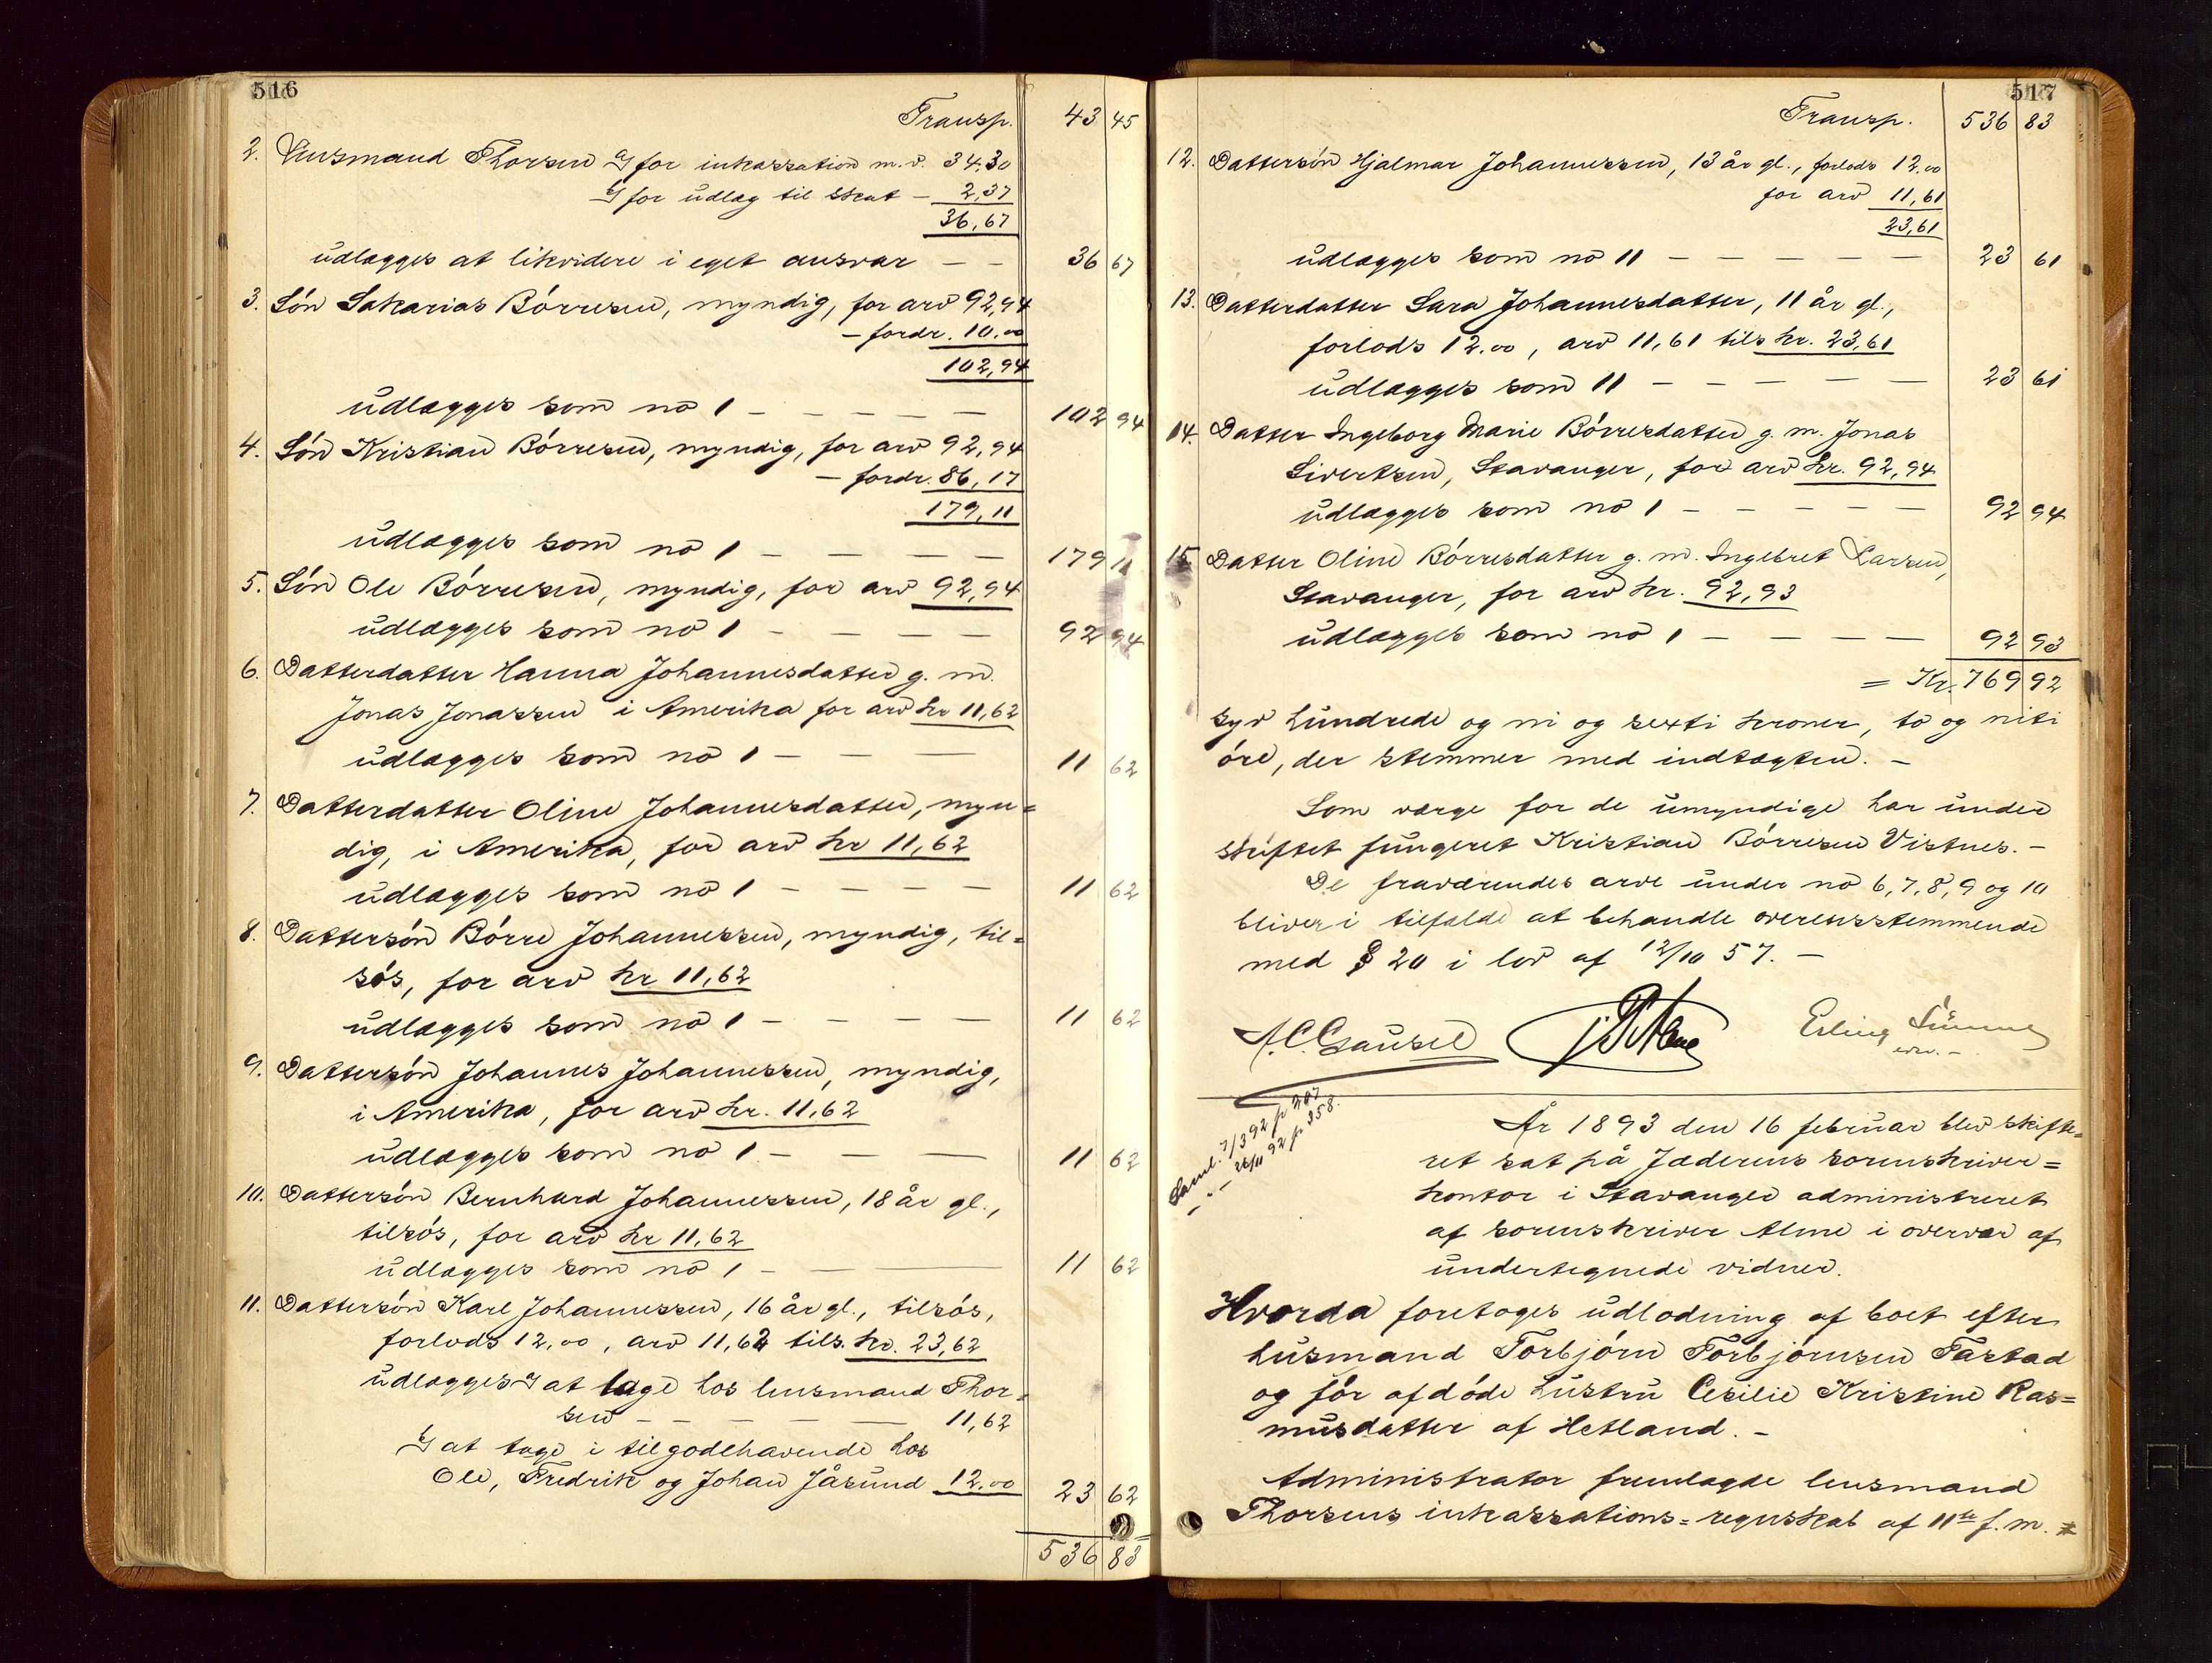 516
Transp. 43 45
2. Lensmand Thorsen a/ for inkassation m. v. 34,30
b/ for udlæg til skat – 2,37
36,67
udlægges at likvidere i eget ansvar – – 36 67
3. Søn Sakarias Børresen, myndig, for arv 92,94
– fordr. 10.00
102,94
udlægges som no 1 – – – – – 102 94
4. Søn Kristian Børresen, myndig, for arv 92,94
– fordr. 86,17
179,11
udlægges som no 1 – – – – 179 11
5. Søn Ole Børresen, myndig, for arv 92,94
udlægges som no 1 – – – – 92 94
6. Datterdatter Hanna Johannesdatter g. m.
Jonas Jonassen i Amerika for arv kr 11,62
udlægges som no 1 – – – 11 62
7. Datterdatter Oline Johannesdatter, myn=
dig, i Amerika, for arv kr 11,62
udlægges som no 1 – – – – 11 62
8. Dattersøn Børre Johannessen, myndig, til=
søs, for arv kr 11,62
udlægges som no 1 – – – – 11 62
9. Dattersøn Johannes Johannessen, myndig,
i Amerika, for arv kr. 11,62
udlægges som no 1 – – – 11 62
10. Dattersøn Bernhard Johannessen, 18 år gl.,
tilsøs, for arv kr 11,62
udlægges som no 1 – – – 11 62
11. Dattersøn Karl Johannessen, 16 år gl., tilsøs,
forlods 12,00, arv 11,62 tils. kr. 23,62
udlægges a/ at tage hos lensmand Thor=
sen – – – – 11,62
b/ at tage i tilgodehavende hos
Ole, Fredrik og Johan Jåsund 12.00 23 62
536 83
517
Transp. 536 83
12. Dattersøn Hjalmar Johannessen, 13 år gl., forlods 12.00
for arv 11,61
23,61
udlægges som no 11 – – – – – 23 61
13. Datterdatter Sara Johannesdatter, 11 år gl.,
forlods 12.00, arv 11,61 tils kr. 23,61
udlægges som 11 – – – – – 23 61
14. Datter Ingeborg Marie Børresdatter g. m. Jonas
Sivertsen, Stavanger, for arv kr. 92,94
udlægges som no 1 – – – – – 92 94
15. Datter Oline Børresdatter g. m. Ingebret Larsen,
Stavanger, for arv kr. 92,93
udlægges som no 1 – – – – 92 93
= Kr. 769 92
syv hundrede og ni og sexti kroner, to og niti
øre, der stemmer med indtægten. –
Som værge for de umyndige har under
skiftet fungeret Kristian Børresen Vistnes. –
De fraværendes arve under no 6, 7, 8, 9 og 10
bliver i tilfælde at behandle overensstemmende
med § 20 i lov af 12/10 57. –
A. C. Gausel Erling
Saml. 7/3 92 p 207
– " – 26/11 92 p. 358.
År 1893 den 16 februar blev skifte=
ret sat på Jæderens sorenskriver=
kontor i Stavanger administreret
af sorenskriver Alme i overvær af
undertegnede vidner.
Hvorda foretoges udlodning af boet efter
husmand Torbjørn Torbjørnsen Tastad
og før afdøde hustru Cesilie Kristine Ras=
musdatter af Hetland. –
Administrator fremlagde lensmand
Thorsens inkassations=regnskab af 11te f. m.